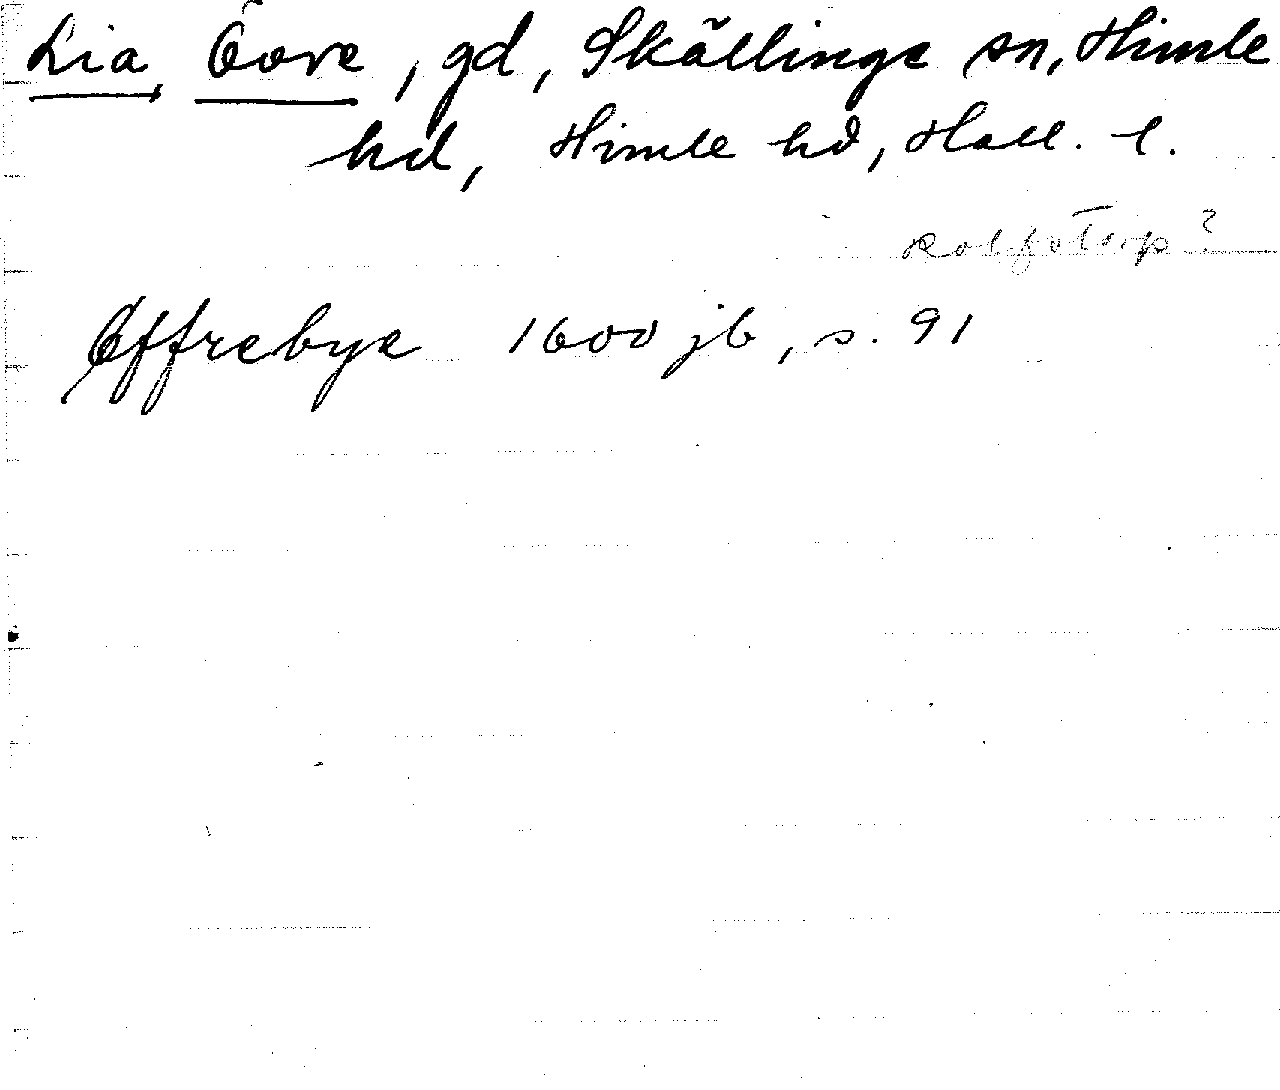 Lia, Övre, gd, Skällinge sn, Himle
hd, Himle hd, Hall. l.
Øffrebye 1600 jb, s. 91